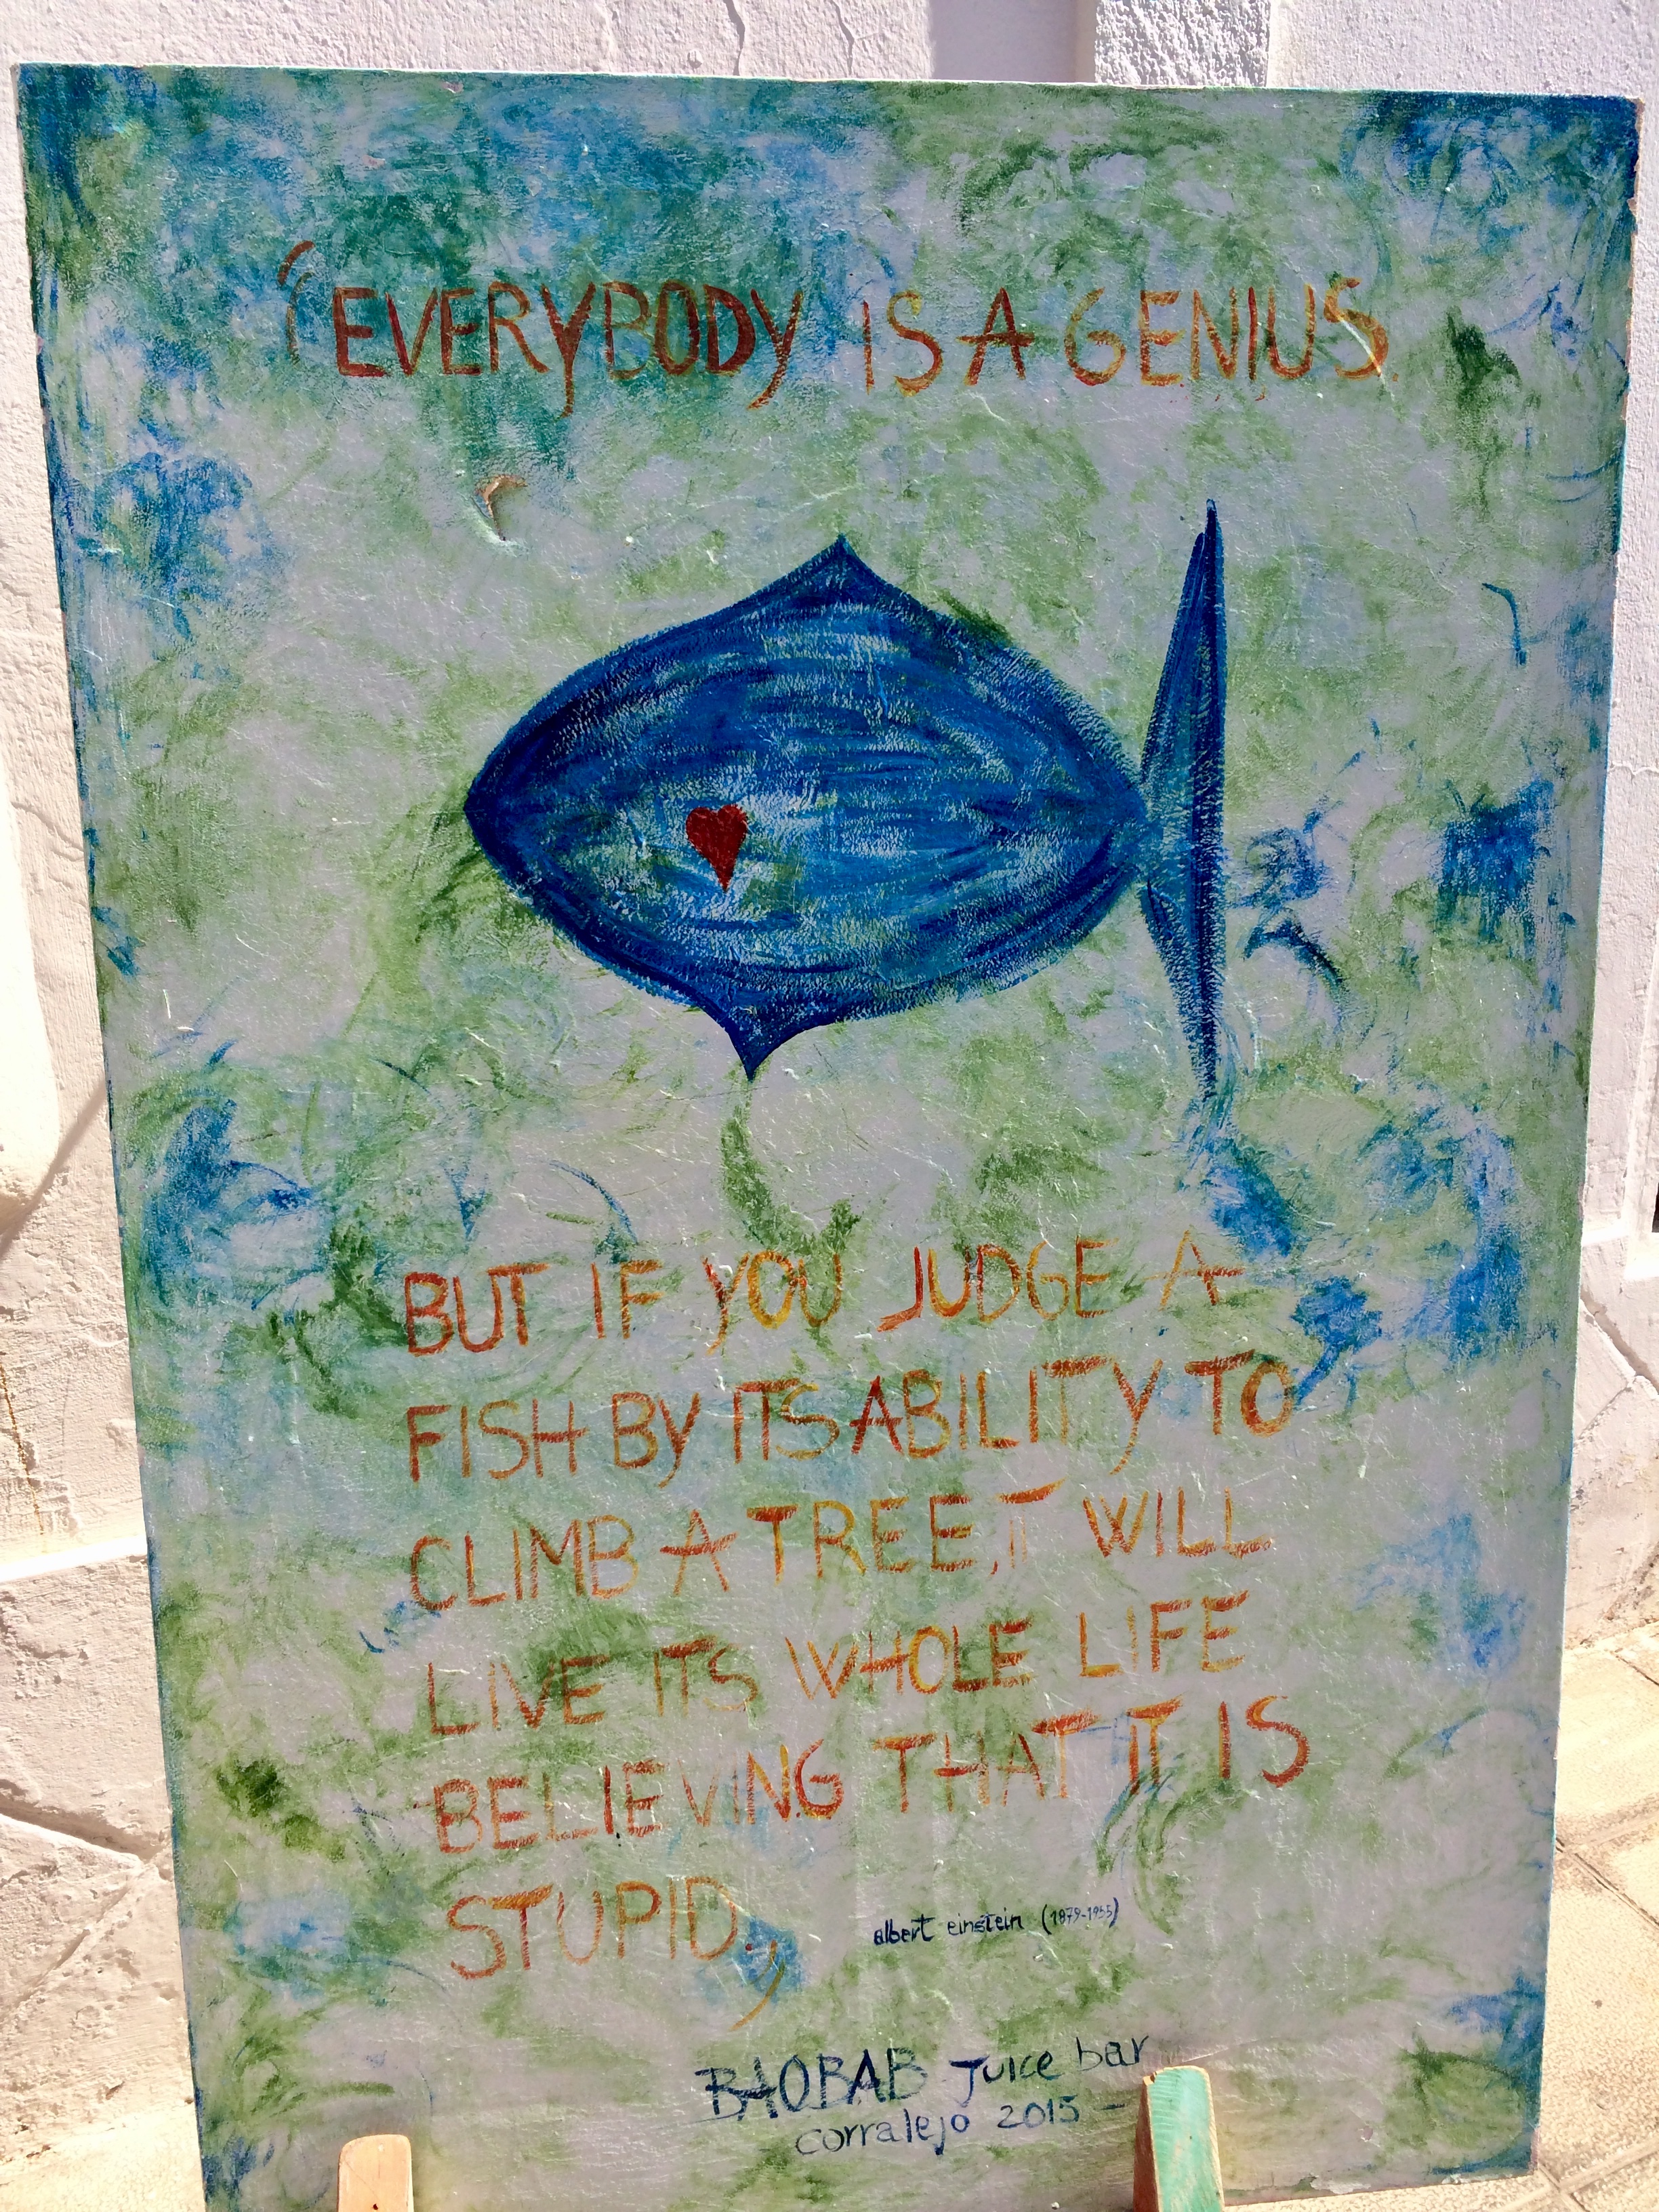 "EVERYBODY IS A GENIUS.
BUT IF YOU JUDGE A
FISH BY ITS ABILITY TO
CLIMB A TREE, IT WILL
LIVE ITS WHOLE LIFE
BELIEVING THAT IT IS
STUPID."
albert einstein (1879-1955)
BAOBAB Juice bar
corralejo 2015 -